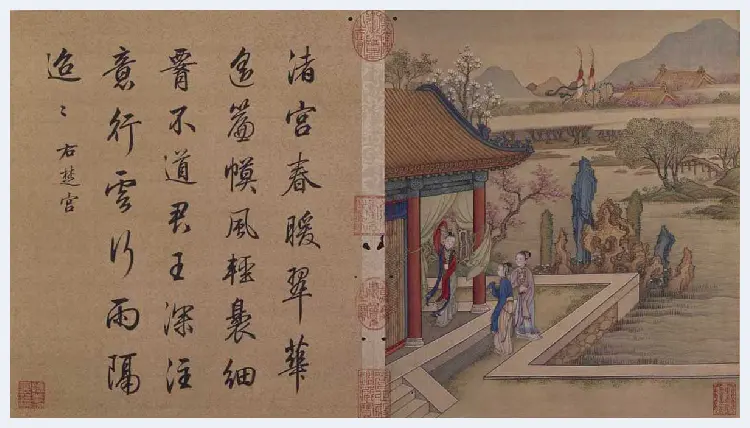 渚宮春暖翠華
遥簾幙風輕裊細
腰不道君王深注
意行雲行雨隔
迢〻右楚宫